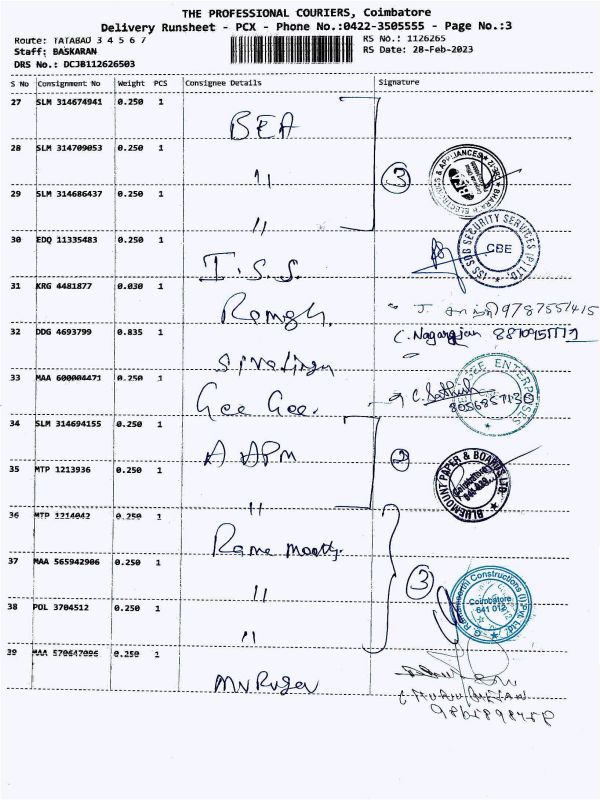 THE PROFESSIONAL COURIERS, Coimbatore
Delivery Runsheet - PCX - Phone No.:0422-3505555 - Page No.:3
Route: TATABAD 3 4 5 6 7
RS No.: 1126265
Staff: BASKARAN
RS Date: 28-Feb-2023
DRS No.: DCJB112626503
S No Consignment No Weight PCS Consignee Details Signature
27 SLM 314674941 0.250 1
BEA
28 SLM 314709053 0.250 1
11
3
29 SLM 314686437 0.250 1
11
30 EDQ 11335483 0.250 1
I.S.S.
ISS SDB SECURITY SERVICES (P) LTD.
CBE
31 KRG 4481877 0.030 1
J. 9787551415
32 DDG 4693799 0.835 1
C. Nagarajan
33 MAA 600004471 0.250 1
Gee Gee.
C. Sathish
GEE ENTERPRISES
34 SLM 314694155 0.250 1
A APM
2
BLUEMOUNT PAPER & BOARDS LTD.
35 MTP 1213936 0.250 1
11
36 MTP 1214042 0.250 1
Rame Moorthy.
37 MAA 565942906 0.250 1
11
3
Constructions (I) Pvt. Ltd.
Coimbatore
641 012
38 POL 3704512 0.250 1
11
39 MAA 570647096 0.250 1